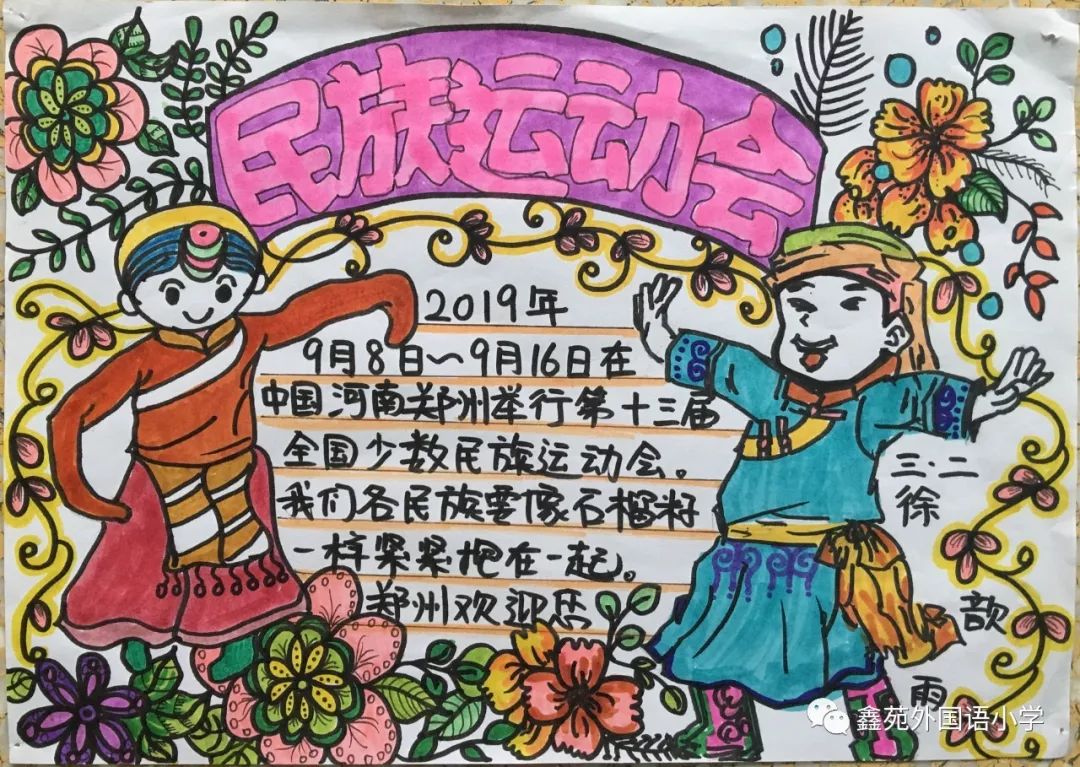 民族运动会
2019年
9月8日～9月16日在
中国河南郑州举行第十三届
全国少数民族运动会。
我们各民族要像石榴籽
一样紧紧抱在一起。
郑州欢迎您
三·二
徐
歆
雨
鑫苑外国语小学